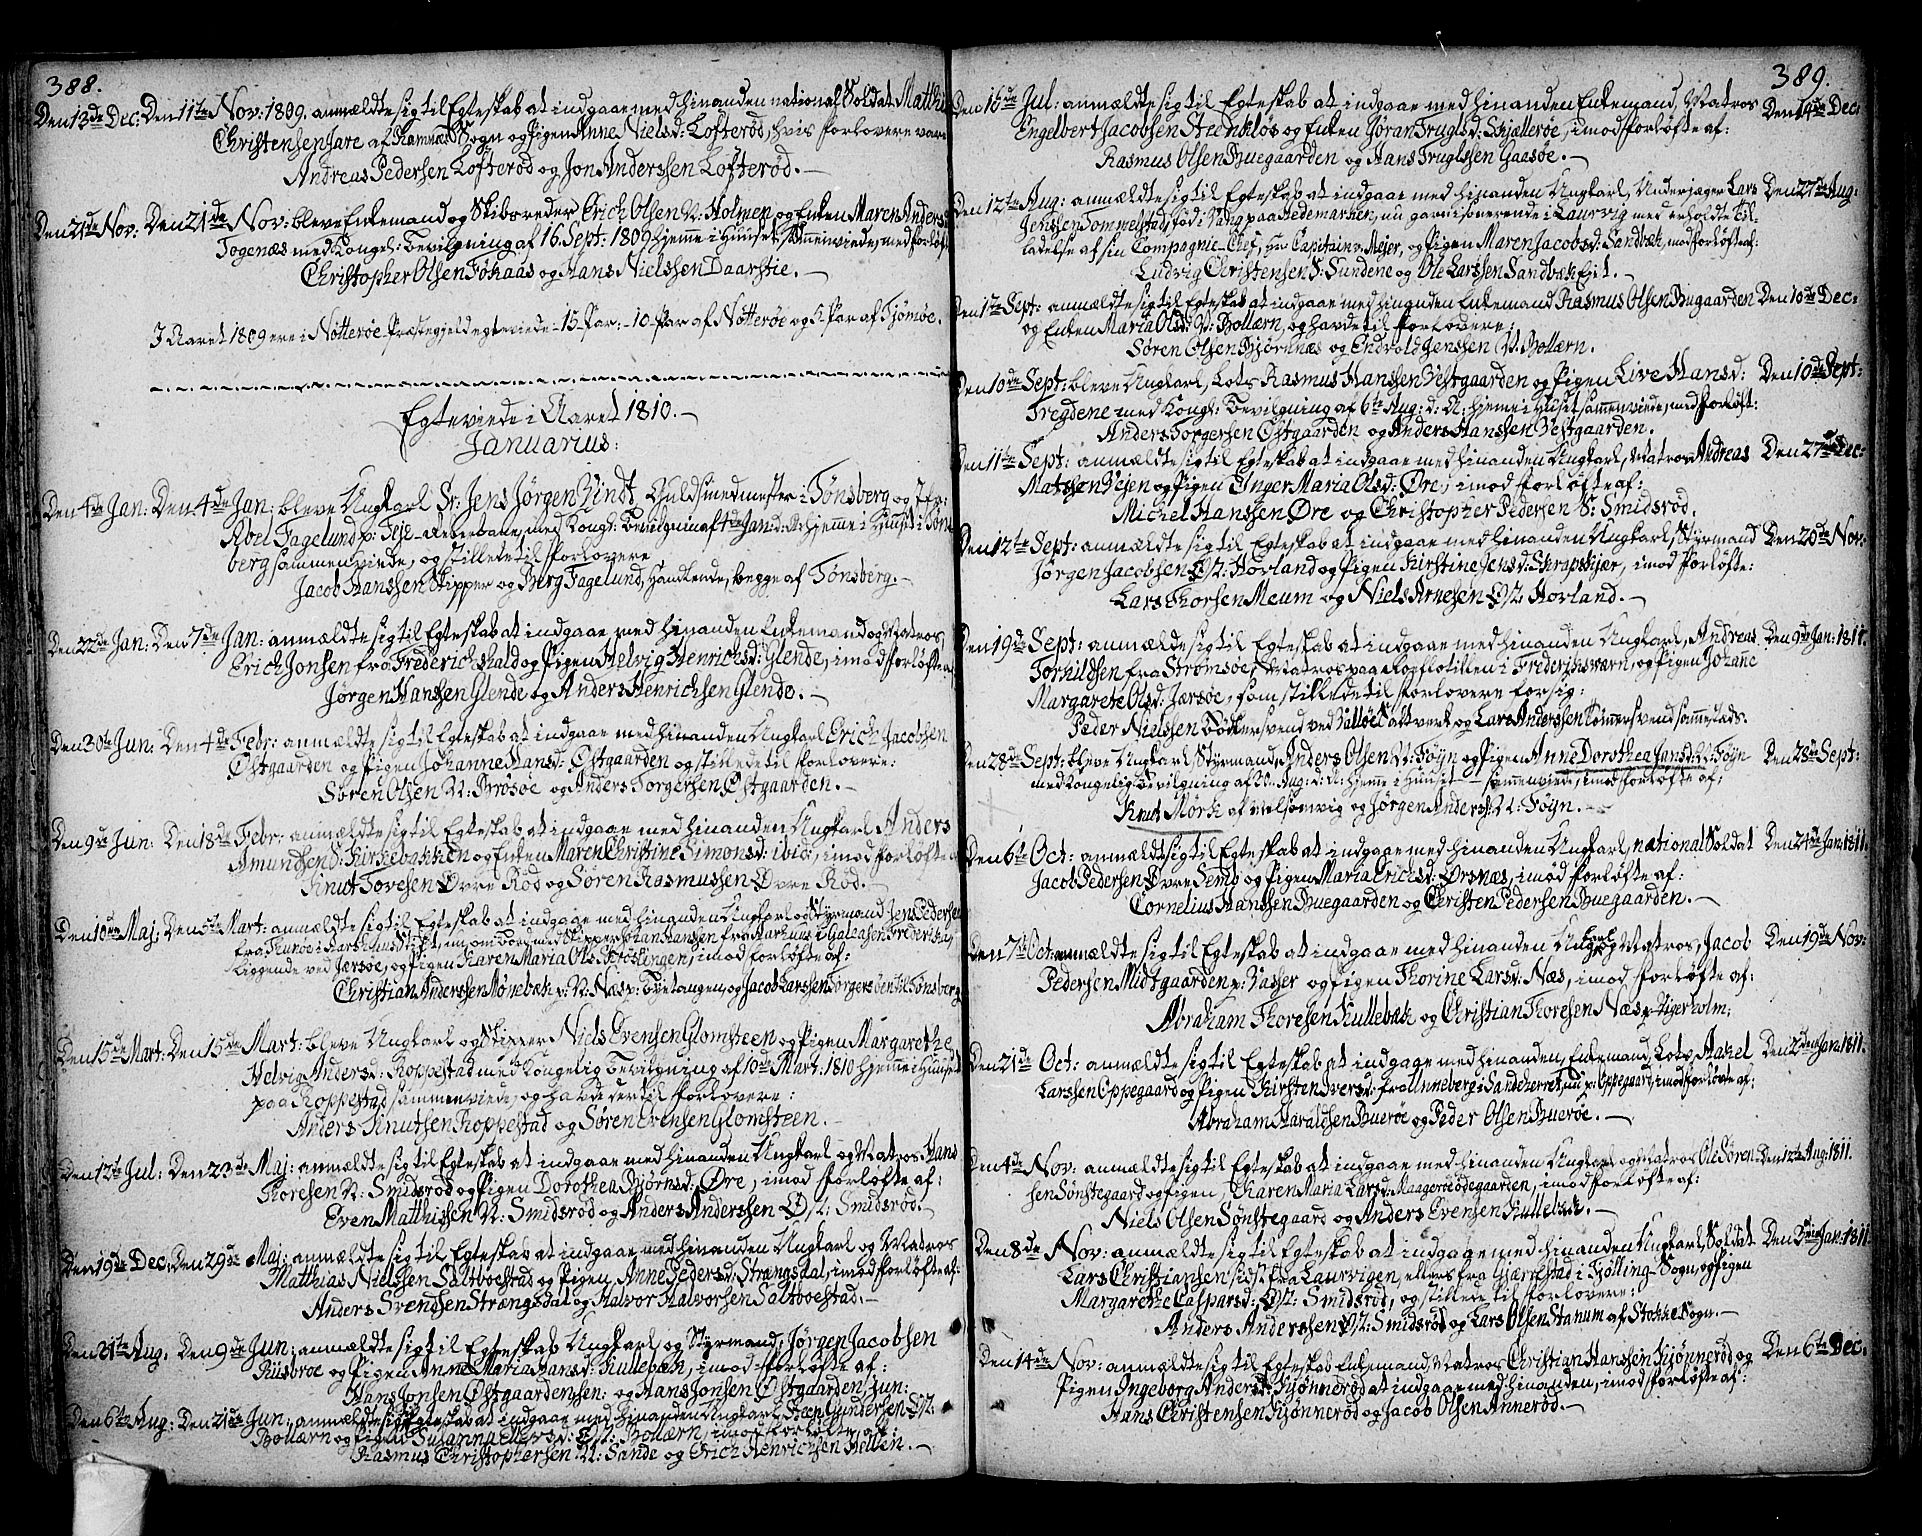 388.
Den 13de Dec: Den 11te Nov: 1809. anmældte sig til Egteskab at indgaae med hinanden national Soldat Matthis
Christensen Jare af Ramnæs Sogn og Pigen Anne Nielsd: Lofterød, hvis forlovere vare
Andreas Pedersen Lofterød og Jon Anderssen Lofterød. —
Den 21de Nov: Den 21de Nov: bleve Enkemand og Skibsreder Erich Olsen N: Holmen og Enken Maren Anders
Togenæs med Kongel: Bevilgning af 16. Sept: 1809 hjemme i Huuset sammenviede, med forløft
Christopher Olsen Føkaas og Hans Nielssen Daarstie. —
I Aaret 1809 ere i Nøtterøe Præstegjeld egteviede 15 Par: 10 Par af Nøtterøe og 5 Par af Tjømøe.
Egteviede i Aaret 1810. —
Januarius:
Den 4de Jan: Den 4de Jan: bleve Ungkarl Sr: Jens Jørgen Vindt, Guldsmedmester i Tønsberg og Jfr:
Abel Fagelund p: Teje med Kongl: Bevilgning af 4de Jan: d: A: hjemme i Huuset i Tøns
berg sammenviede, og stillede til forlovere
Jacob Hanssen Skipper og Berg Fagelund, Handlende, begge af Tønsberg. —
Den 22de Jan: Den 7de Jan: anmældte sig til Egteskab at indgaae med hinanden Enkemand og Matros
Erich Jonsen fra Friderichshald og Pigen Helvig Henrichsd: Glende, imod forløfte af
Jørgen Hanssen Glende og Anders Henrichsen Glende. —
Den 30te Jun: Den 4de Febr: anmældte sig til Egteskab at indgaae med hinanden Ungkarl Erich Jacobsen
Østgaarden og Pigen Johanne Hansd: Østgaarden og stillede til forlovere:
Søren Olsen N: Brøsøe og Anders Torgersen Østgaarden. —
Den 9de Jun: Den 18de Febr: anmældte sig til Egteskab at indgaae med hinanden Ungkarl Anders
Amundsen S: Kirkebakken og Enken Maren Christine Simonsd: ibid:, imod forløfte af
Knut Tovesen Øvre Rød og Søren Rasmussen Øvre Rød. —
Den 10de Maj: Den 5te Mart: anmældte sig til Egteskab at indgaae med hinanden Ungkarl og Styrmand Jens Pedersen
fra Thunøe i Aarhuus Stift om Bord med Skipper Johan Hansen fra Aarhuus i Galeasen Friderika,
liggende ved Jærsøe, og Pigen Karen Maria Olsd: Brøtsingen, imod forløfte af:
Christian Anderssen Mønebæk p: N: Næs p: Byetangen, og Jacob Larssen Torgersøen til Tønsberg
Den 15de Mart: Den 15de Mart: bleve Ungkarl og Skipper Niels Evensen Glomsteen og Pigen Margarethe
Helvig Andersd: Roppestad med Kongelig Bevilgning af 10de Mart: 1810 hjemme i Huuset
paa Roppestad sammenviede, og havde der til forlovere:
Anders Knutsen Roppestad og Søren Evensen Glomsteen.
Den 12te Jul: Den 23de Maj: anmældte sig til Egteskab at indgaae med hinanden Ungkarl og Matros Hans
Thoresen N: Smidsrød og Pigen Dorothea Bjørnsd: Øre, imod forløfte af:
Even Matthissen N: Smidsrød og Anders Anderssen Ø/2: Smidsrød. —
Den 19de Dec: Den 29de Maj: anmældte sig til Egteskab at indgaae med hinanden Ungkarl og Matros
Matthias Nielssen Saltboestad og Pigen Anne Pedersd: Strængsdal, imod forløfte af:
Anders Svendsen Strængsdal og Halvor Halvorsen Saltboestad. —
Den 21te Aug: Den 9de Jun: anmældte sig til Egteskab Ungkarl og Styrmand, Jørgen Jacobsen
Riisbroe og Pigen Anne Maria Hansd: Kullebæk, imod forløfte af:
Hans Jonsen Østgaarden sen: og Hans Jonsen Østgaarden, jun:
Den 6te Aug: Den 21de Jun: anmældte sig Egteskab at indgaae med hinanden Ungkarl Gundersen Ø/2:
Bollærn og Pigen Susanna Ø/2: Bollærn, imod forløfte af:
Rasmus Christophersen N: Sande og Erich Henrichsen Hellen. —
389.
Den 16de Jul: anmældte sig til Egteskab at indgaae med hinanden Enkemand, Matros Den 14de Dec:
Engelbert Jacobsen Steenkløs og Enken Jøran Truglsd: Skjællerøe, imod forløfte af:
Rasmus Olsen Buegaarden og Hans Truglssen Gaasøe. —
Den 12te Aug: anmældte sig til Egteskab at indgaae med hinanden Ungkarl, Underjæger Lars Den 27de Aug:
Jenssen Tommelstad, fød i Vang paa Hedemarken, nu garnisonerende i Laurvig med erholdte Til-
ladelse af sin Compagnie-Chef, Hr: Capitain v: Mejer, og Pigen Maren Jacobsd: Sandbæk, mod forløfte af:
Ludvig Christensen S: Sundene og Ole Larssen Sandbæk Eid. —
Den 1te Sept: anmældte sig til Egteskab at indgaae med hinanden Enkemand Rasmus Olsen Bugaarden Den 10de Dec:
og Enken Maria Olsd: N: Bollærn, og havde til forlovere:
Søren Olsen Bjørnnæs og Endvold Jenssen N: Bollærn.
Den 10de Sept: bleve Ungkarl, Lots Rasmus Hanssen Vestgaarden og Pigen Live Hansd: Den 10de Sept:
Tregdene med Kongl: Bevilgning af 6te Aug: d: A: hjemme i Huuset sammenviede, med forløft:
Anders Torgersen Østgaarden og Anders Hanssen Vestgaarden.
Den 11te Sept: anmældte sig til Egteskab at indgaae med hinanden Ungkarl, Matros Andreas Den 27de Dec:
Matssen Vejen og Pigen Inger Maria Olsd: Øre, imod forløfte af:
Michel Hanssen Øre og Christopher Pedersen S: Smidsrød.
Den 12te Sept: anmældte sig til Egteskab at indgaae med hinanden Ungkarl, Styrmand Den 20de Nov:
Jørgen Jacobsen Ø/2: Hovland og Pigen Kirstine Jensd: Skrapskjær, imod forløfte:
Lars Thorsen Meum og Niels Arnesen Ø/2: Hovland. —
Den 19de Sept: anmældte sig til Egteskab at indgaae med hinanden Ungkarl, Andreas Den 9de Jan: 1811.
Torkildsen fra Strømsøe, Matros paa Roeflotillen i Frideriksværn, og Pigen Johanne
Margarete Olsd: Jærsøe, som stillede til forlovere for sig:
Peder Nielssen Bødkersvend ved Valløe Saltverk og Lars Anderssen Tømmersvend sammestads.
Den 28de Sept: bleve Ungkarl Styrmand, Anders Olsen N: Føyn og Pigen Anne Dorothea Jansd: N: Føyn Den 28de Sept:
med Kongelig Bevilgning af 20de Aug: d: A: hjemme i Huuset — sammenviede, imod forløfte af:
Knut Mørk af Melsomvig og Jørgen Anderss: N: Føyn. —
Den 6te Oct: anmældte sig til Egteskab at indgaae med hinanden Ungkarl, national Soldat Den 21de Jan: 1811.
Jacob Pedersen Øvre Semb og Pigen Maria Erichsd: Ørsnæs, imod forløfte af:
Cornelius Hanssen Buegaarden og Christen Pedersen Buegaarden. —
Den 7de Oct: anmældte sig til Egteskab at indgaae med hinanden Ungkarl og Matros, Jacob Den 19de Nov:
Pedersen Midtgaarden p: Vasser og Pigen Thorine Larsd: Næs, imod forløfte af:
Abraham Thoresen Kullebæk og Christian Thoresen Næs p: Vejerholm;
Den 21de Oct: anmældte sig til Egteskab at indgage med hinanden, Enkemand, Lots, Aakel Den 2den Jan: 1811.
Larssen Oppegaard og Pigen Kirsten Iversd: fra Unneberg i Sandeherret, nu p: Oppegaard, imod forløfte af:
Abraham Haraldsen Buerøe og Peder Olsen Buerøe. —
Den 4de Nov: anmældte sig til Egteskab at indgaae med hinanden Ungkarl og Matros Ole Søren- Den 12te Aug: 1811.
sen Sønstegaard og Pigen, Karen Maria Larsd: Maagerøe ødegaarden, imod forløfte af:
Niels Olsen Sønstegaard og Anders Evensen Kullebæk. —
Den 8de Nov: anmældte sig til Egteskab at indgaae med hinanden Ungkarl, Soldat Den 3die Jan: 1811
Lars Christiansen sidst fra Laurvigen, ellers fra Gjærrestad i Tjølling-Sogn, og Pigen
Margarethe Caspersd: Ø/2: Smidsrød, og stillede til forlovere:
Anders Anderssen Ø/2: Smidsrød og Lars Olsen Hanum af Stokke Sogn. —
Den 14de Nov: anmældte sig til Egteskab Enkemand, Matros Christian Hanssen Kjønnerød og Den 6te Dec.
Pigen Ingeborg Andersd: Kjønnerød at indgaae med hinanden, imod forløfte af:
Hans Christensen Kjønnerød og Jacob Olsen Annerød. —